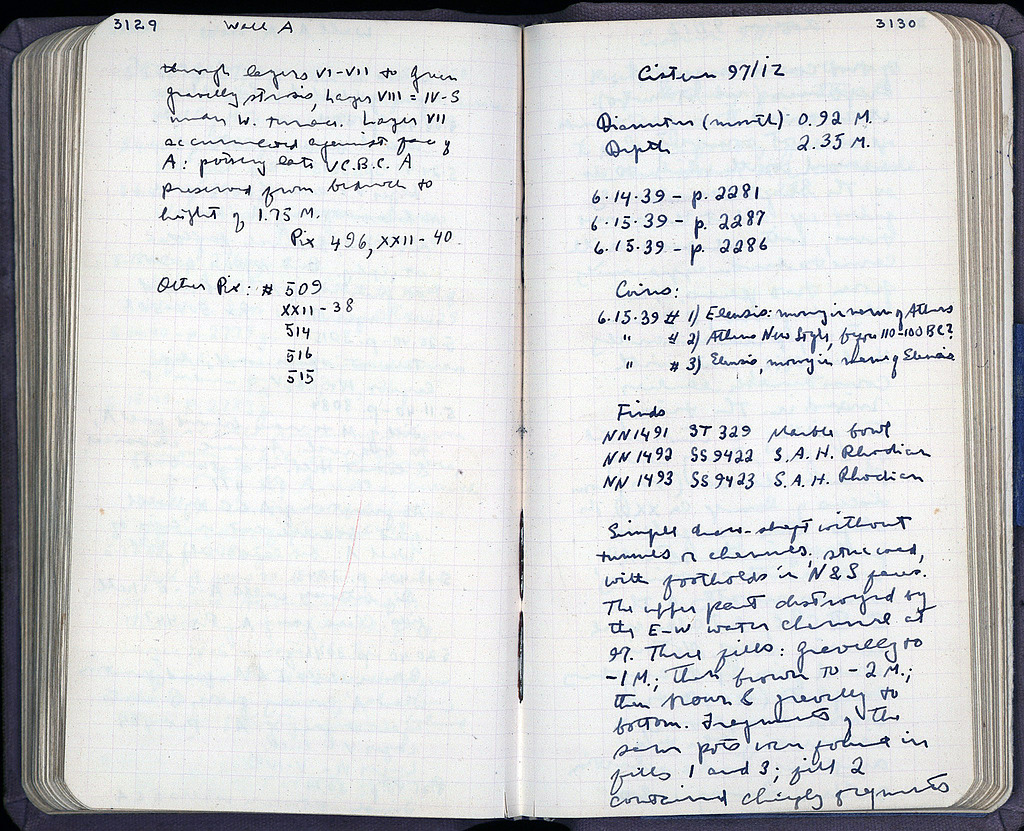 3129 Wall A
through layers VI-VII to green
gravelly stosis, Layer VIII = IV-S
under W. terrace. Layer VII
accumulated against face of
A: pottery late V C.B.C. A
preserved from bedrock to
height of 1.75 M.
Pix 496, XXII-40.
Other Pix: # 509
XXII-38
514
516
515
3130
Cistern 97/IZ
Diameter (mouth) 0.92 M.
Depth 2.35 M.
6.14.39 - p. 2281
6.15.39 - p. 2287
6.15.39 - p. 2286
Coins:
6.15.39 # 1) Eleusis: money in name of Athens
" # 2) Athens New Style, 110-100 BC?
" # 3) Eleusis, money in name of Eleusis
Finds
NN1491 ST 329 Marble bowl
NN1492 SS9422 S.A.H. Rhodian
NN1493 SS9423 S.A.H. Rhodian
Simple draw-shaft without
tunnels or channels, stuccoed,
with footholds in N&S faces.
The upper part destroyed by
the E-W water channel at
97. Three fills: gravelly to
-1 M.; then brown to -2 M.;
then brown & gravelly to
bottom. Fragments of the
same pots were found in
fills 1 and 3; fill 2
contained chiefly fragments